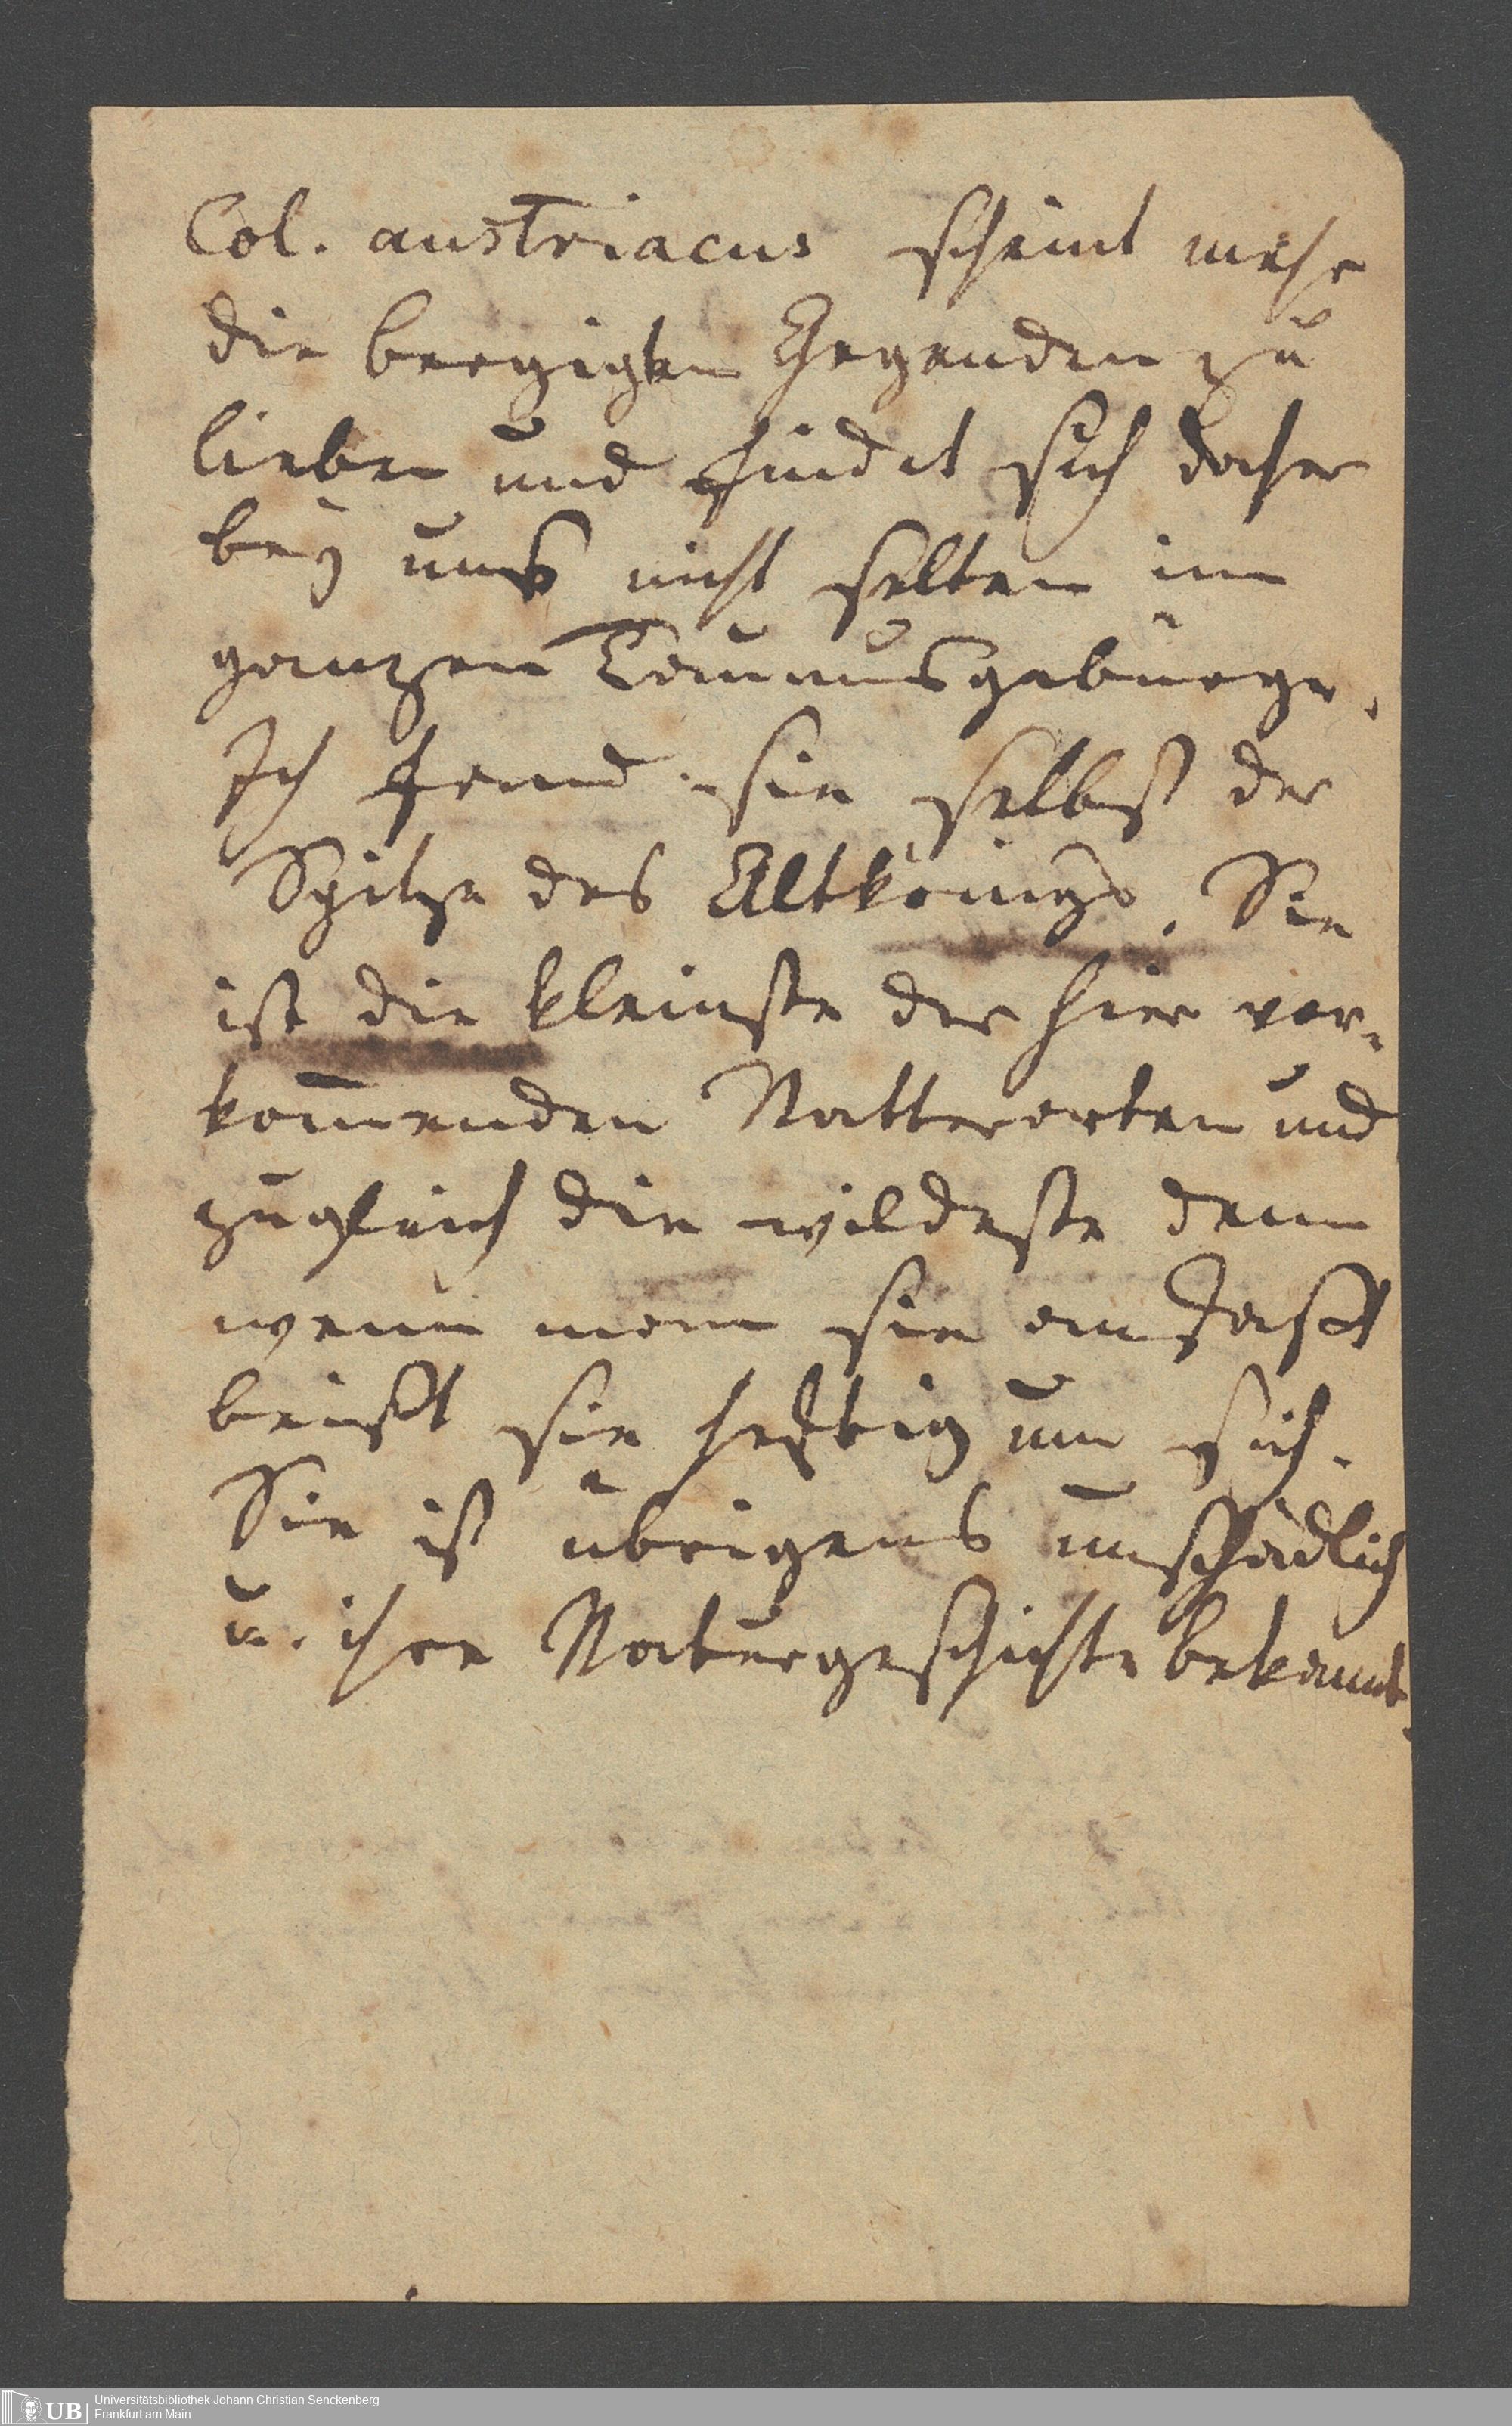 Col. austriacus scheint mehr
die bergigten Gegenden zu
lieben und findet sich daher
bey uns nicht selten im
ganzen Taunusgebürge.
Ich fand sie selbst der
Spitze des Altkönigs. Sie
ist die kleinste der hier vor-
kom̅enden Natterarten und
zugleich die wildeste denn
wenn man sie anfasst
beisst sie heftig um sich.
Sie ist übrigens unschädlich
u. ihre Naturgeschichte bekannt.
UB
Universitätsbibliothek Johann Christian Senckenberg
Frankfurt am Main